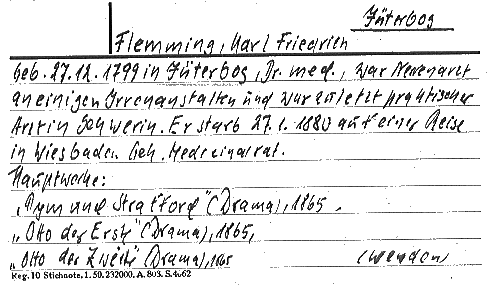 Jüterbog
Flemming, Karl Friedrich
geb. 27.12.1799 in Jüterbog, Dr. med., war Nervenarzt
an einigen Irrenanstalten und war zuletzt praktischer
Arzt in Schwerin. Er starb 27.1.1880 auf einer Reise
in Wiesbaden. Geh. Medizinalrat.
Hauptwerke:
"Pym und Strafford" (Drama), 1865,
"Otto der Erste" (Drama), 1865,
"Otto der Zweite" (Drama), 1865 (Wenden)
Reg. 10 Stichnote. 1. 50. 232000. A. 803. S. 4662